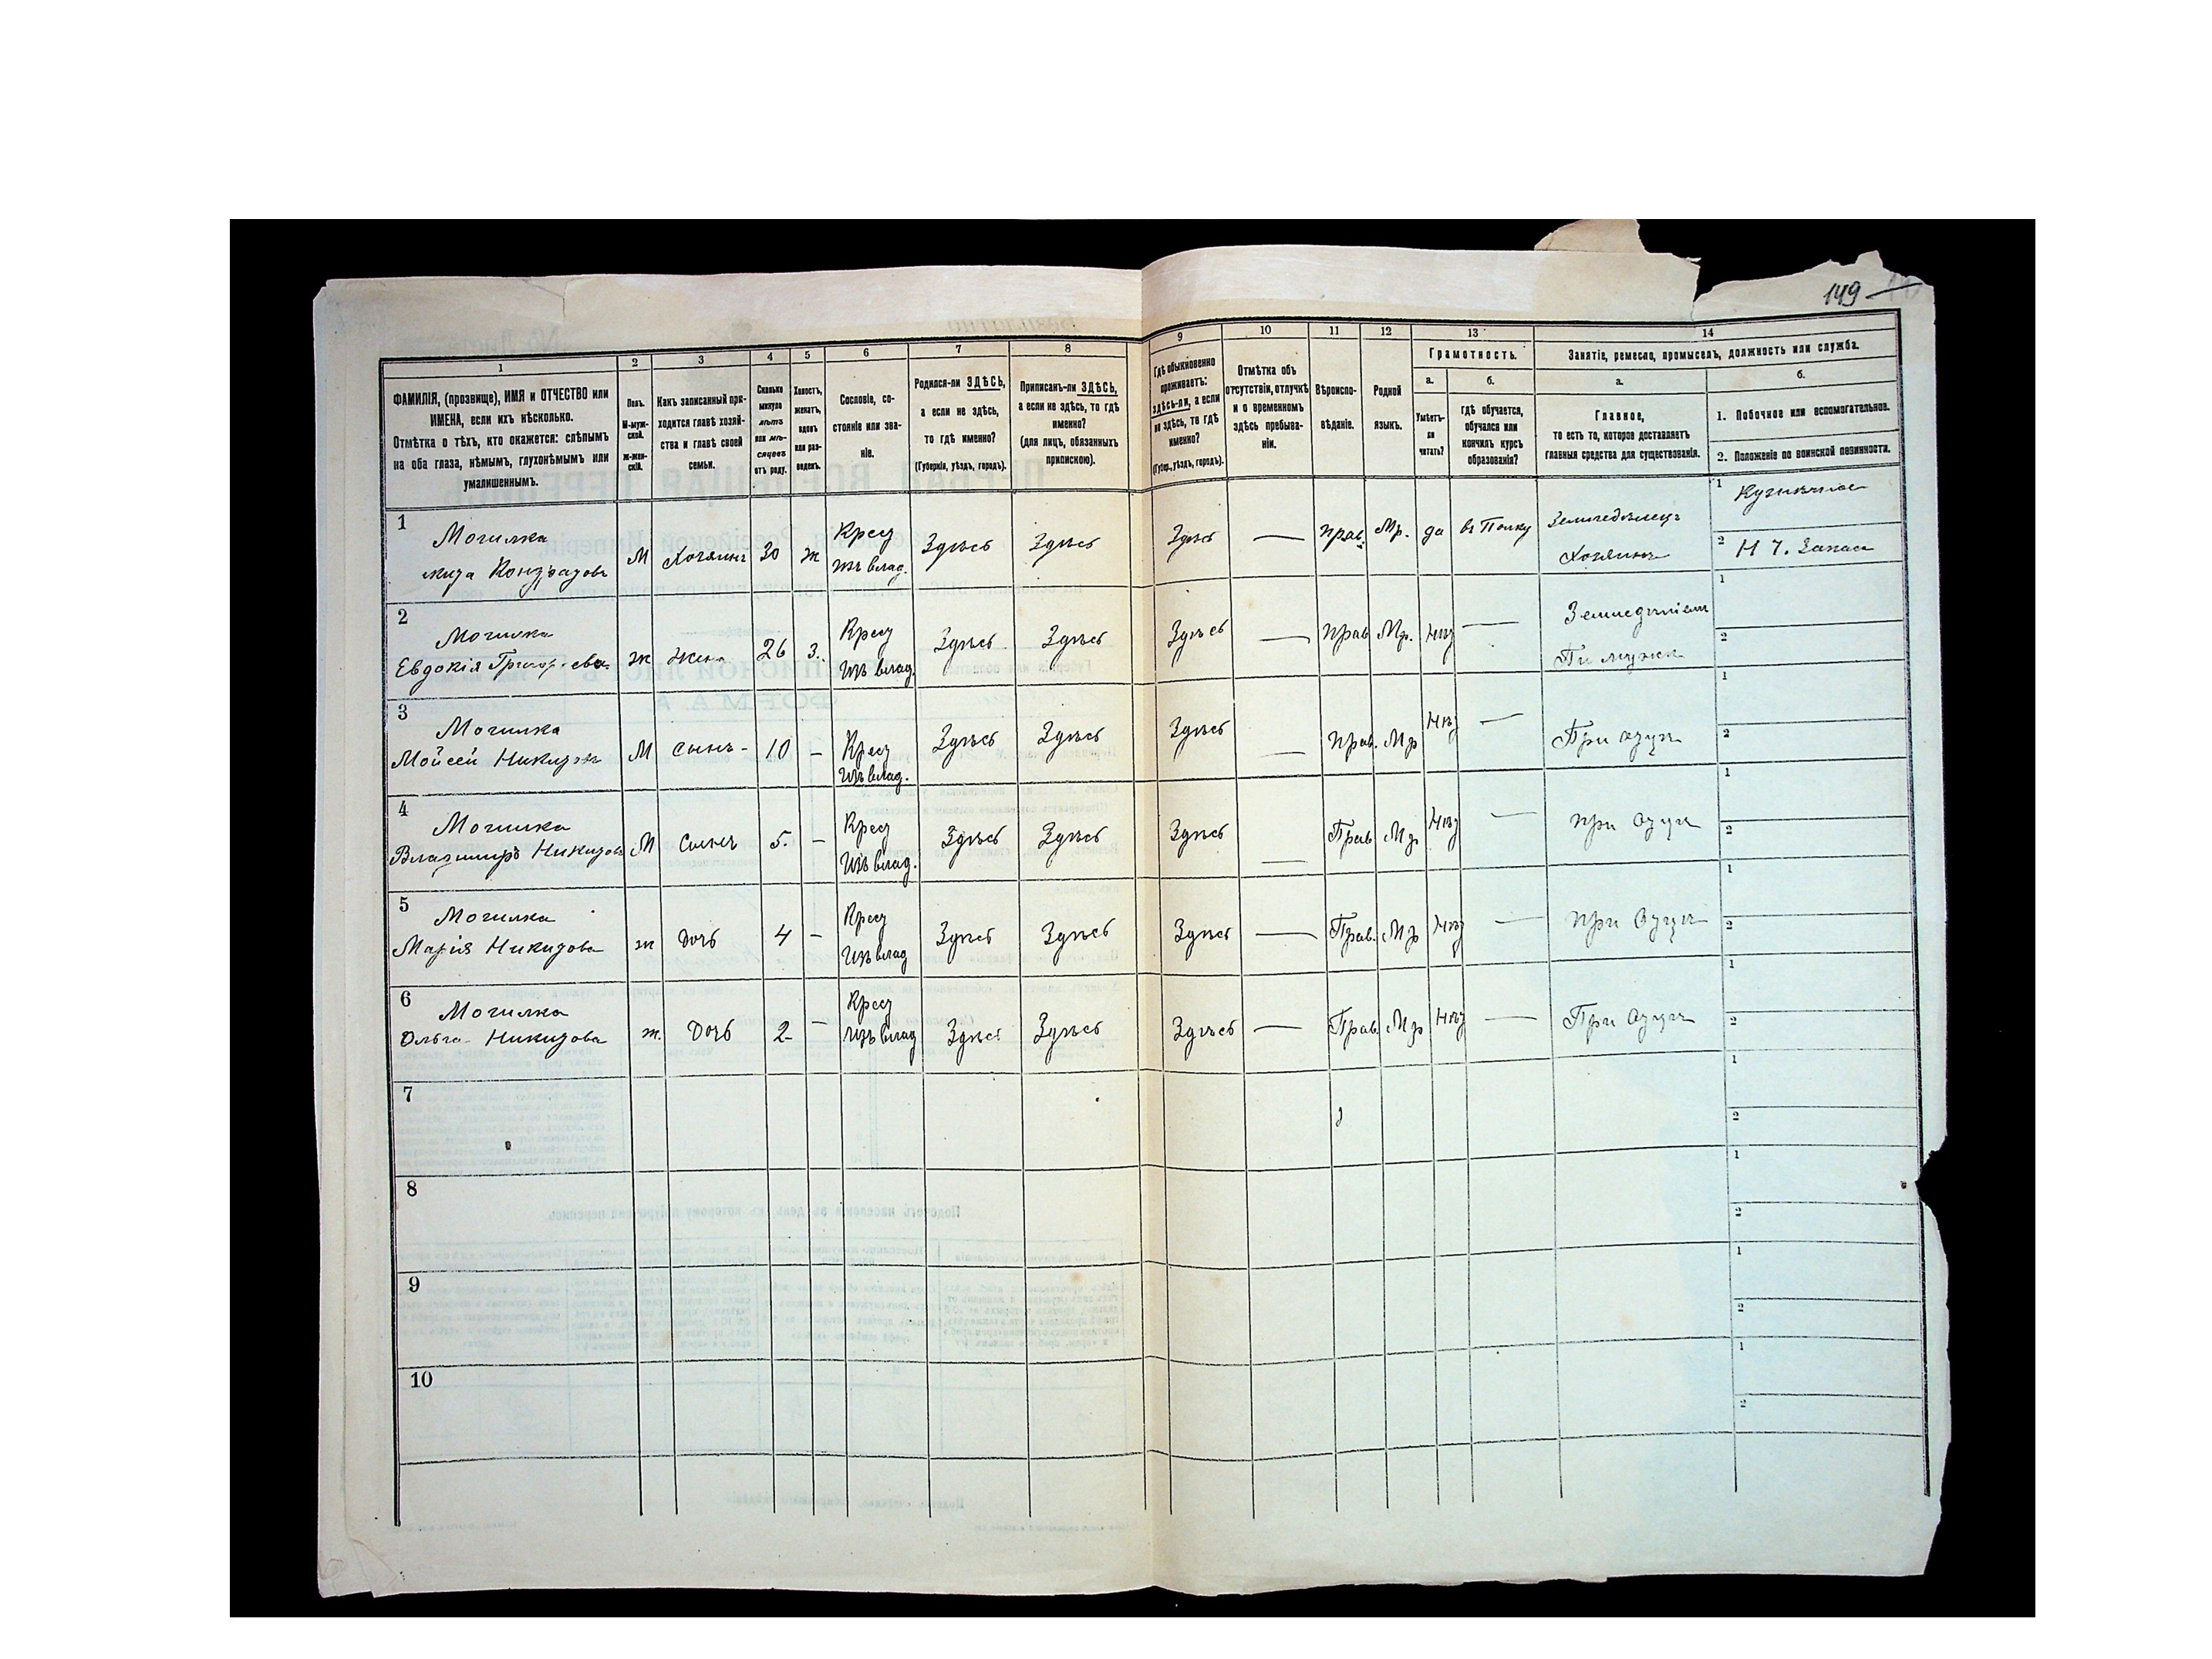 149
1
2
3
4
5
6
7
8
9
10
11
12
13
14
ФАМИЛІЯ, (прозвище), ИМЯ и ОТЧЕСТВО или
ИМЕНА, если ихъ нѣсколько.
Отмѣтка о тѣхъ, кто окажется: слѣпымъ
на оба глаза, нѣмымъ, глухонѣмымъ или
умалишеннымъ.
Полъ.
М-муж-
ской.
Ж-жен-
скій.
Какъ записанный при-
ходится главѣ хозяй-
ства и главѣ своей
семьи.
Сколько
минуло
лѣтъ
или мѣ-
сяцевъ
отъ роду.
Холостъ,
женатъ,
вдовъ
или раз-
веденъ.
Сословіе, со-
стояніе или зва-
ніе.
Родился-ли ЗДѢСЬ,
а если не здѣсь,
то гдѣ именно?
(Губернія, уѣздъ, городъ).
Приписанъ-ли ЗДѢСЬ,
а если не здѣсь, то гдѣ
именно?
(для лицъ, обязанныхъ
припискою).
Гдѣ обыкновенно
проживаетъ:
здѣсь-ли, а если
не здѣсь, то гдѣ
именно?
(Губер., уѣздъ, городъ).
Отмѣтка объ
отсутствіи, отлучкѣ
и о временномъ
здѣсь пребыва-
ніи.
Вѣроиспо-
вѣданіе.
Родной
языкъ.
Грамотность.
а.
б.
Умѣетъ-
ли
читать?
гдѣ обучается,
обучался или
кончилъ курсъ
образованія?
Занятіе, ремесло, промыселъ, должность или служба.
а.
б.
Главное,
то есть то, которое доставляетъ
главныя средства для существованія.
1. Побочное или вспомогательное.
2. Положеніе по воинской повинности.
1
Могилка
Кондратовъ
М Хозяинъ 30 ж
Крест
изъ влад.
Здѣсь Здѣсь Здѣсь — прав. Мр. да въ Полку
Земледѣлецъ
Хозяинъ
1
2 Н Ч. Запаса
2
Могилка
Евдокія Григорьева
ж жена 26 З.
Крест
Изъ влад.
Здѣсь Здѣсь Здѣсь — прав Мр. Нѣт —
1
2
3
Могилка
Мойсей Никитовъ
М сынъ 10 —
Крест
Изъ влад.
Здѣсь Здѣсь Здѣсь — прав. Мр Нѣт —
При отцѣ
1
2
4
Могилка
Владимиръ Никитовъ
М Сынъ 5. —
Крест
Изъ влад.
Здѣсь Здѣсь Здѣсь — Прав Мр Нѣт —
при отцѣ
1
2
5
Могилка
Марія Никитова
ж дочь 4 —
Крест
Изъ влад
Здѣсь Здѣсь Здѣсь — Прав. Мр Нѣт —
при отцѣ
1
2
6
Могилка
Ольга Никитова
ж. дочь 2 —
Крест
Изъ влад
Здѣсь Здѣсь Здѣсь — Прав Мр Нѣт —
При отцѣ
1
2
7
1
2
8
1
2
9
1
2
10
1
2